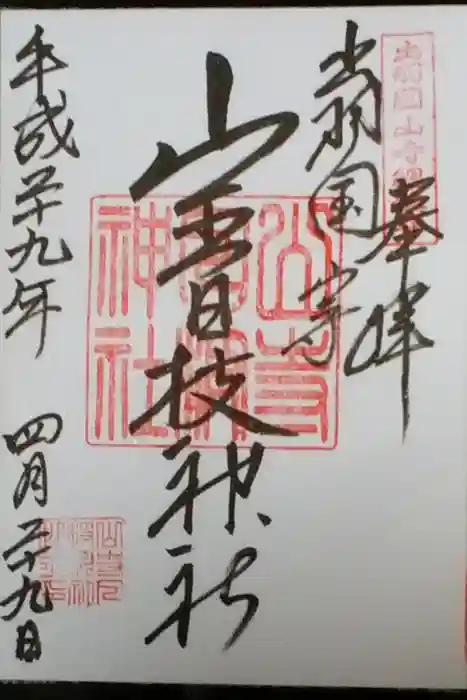 奉拝
出羽国山寺
山寺日枝神社
平成二十九年
四月二十九日
山寺
日枝
神社